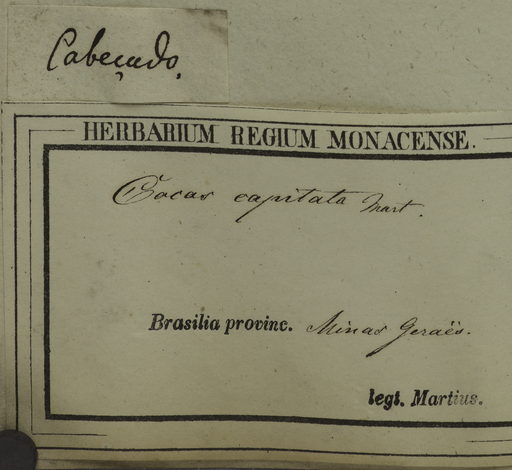 Cabeçudo.
HERBARIUM REGIUM MONACENSE.
Cocos capitata Mart.
Brasilia provinc. Minas Geraës.
legt. Martius.